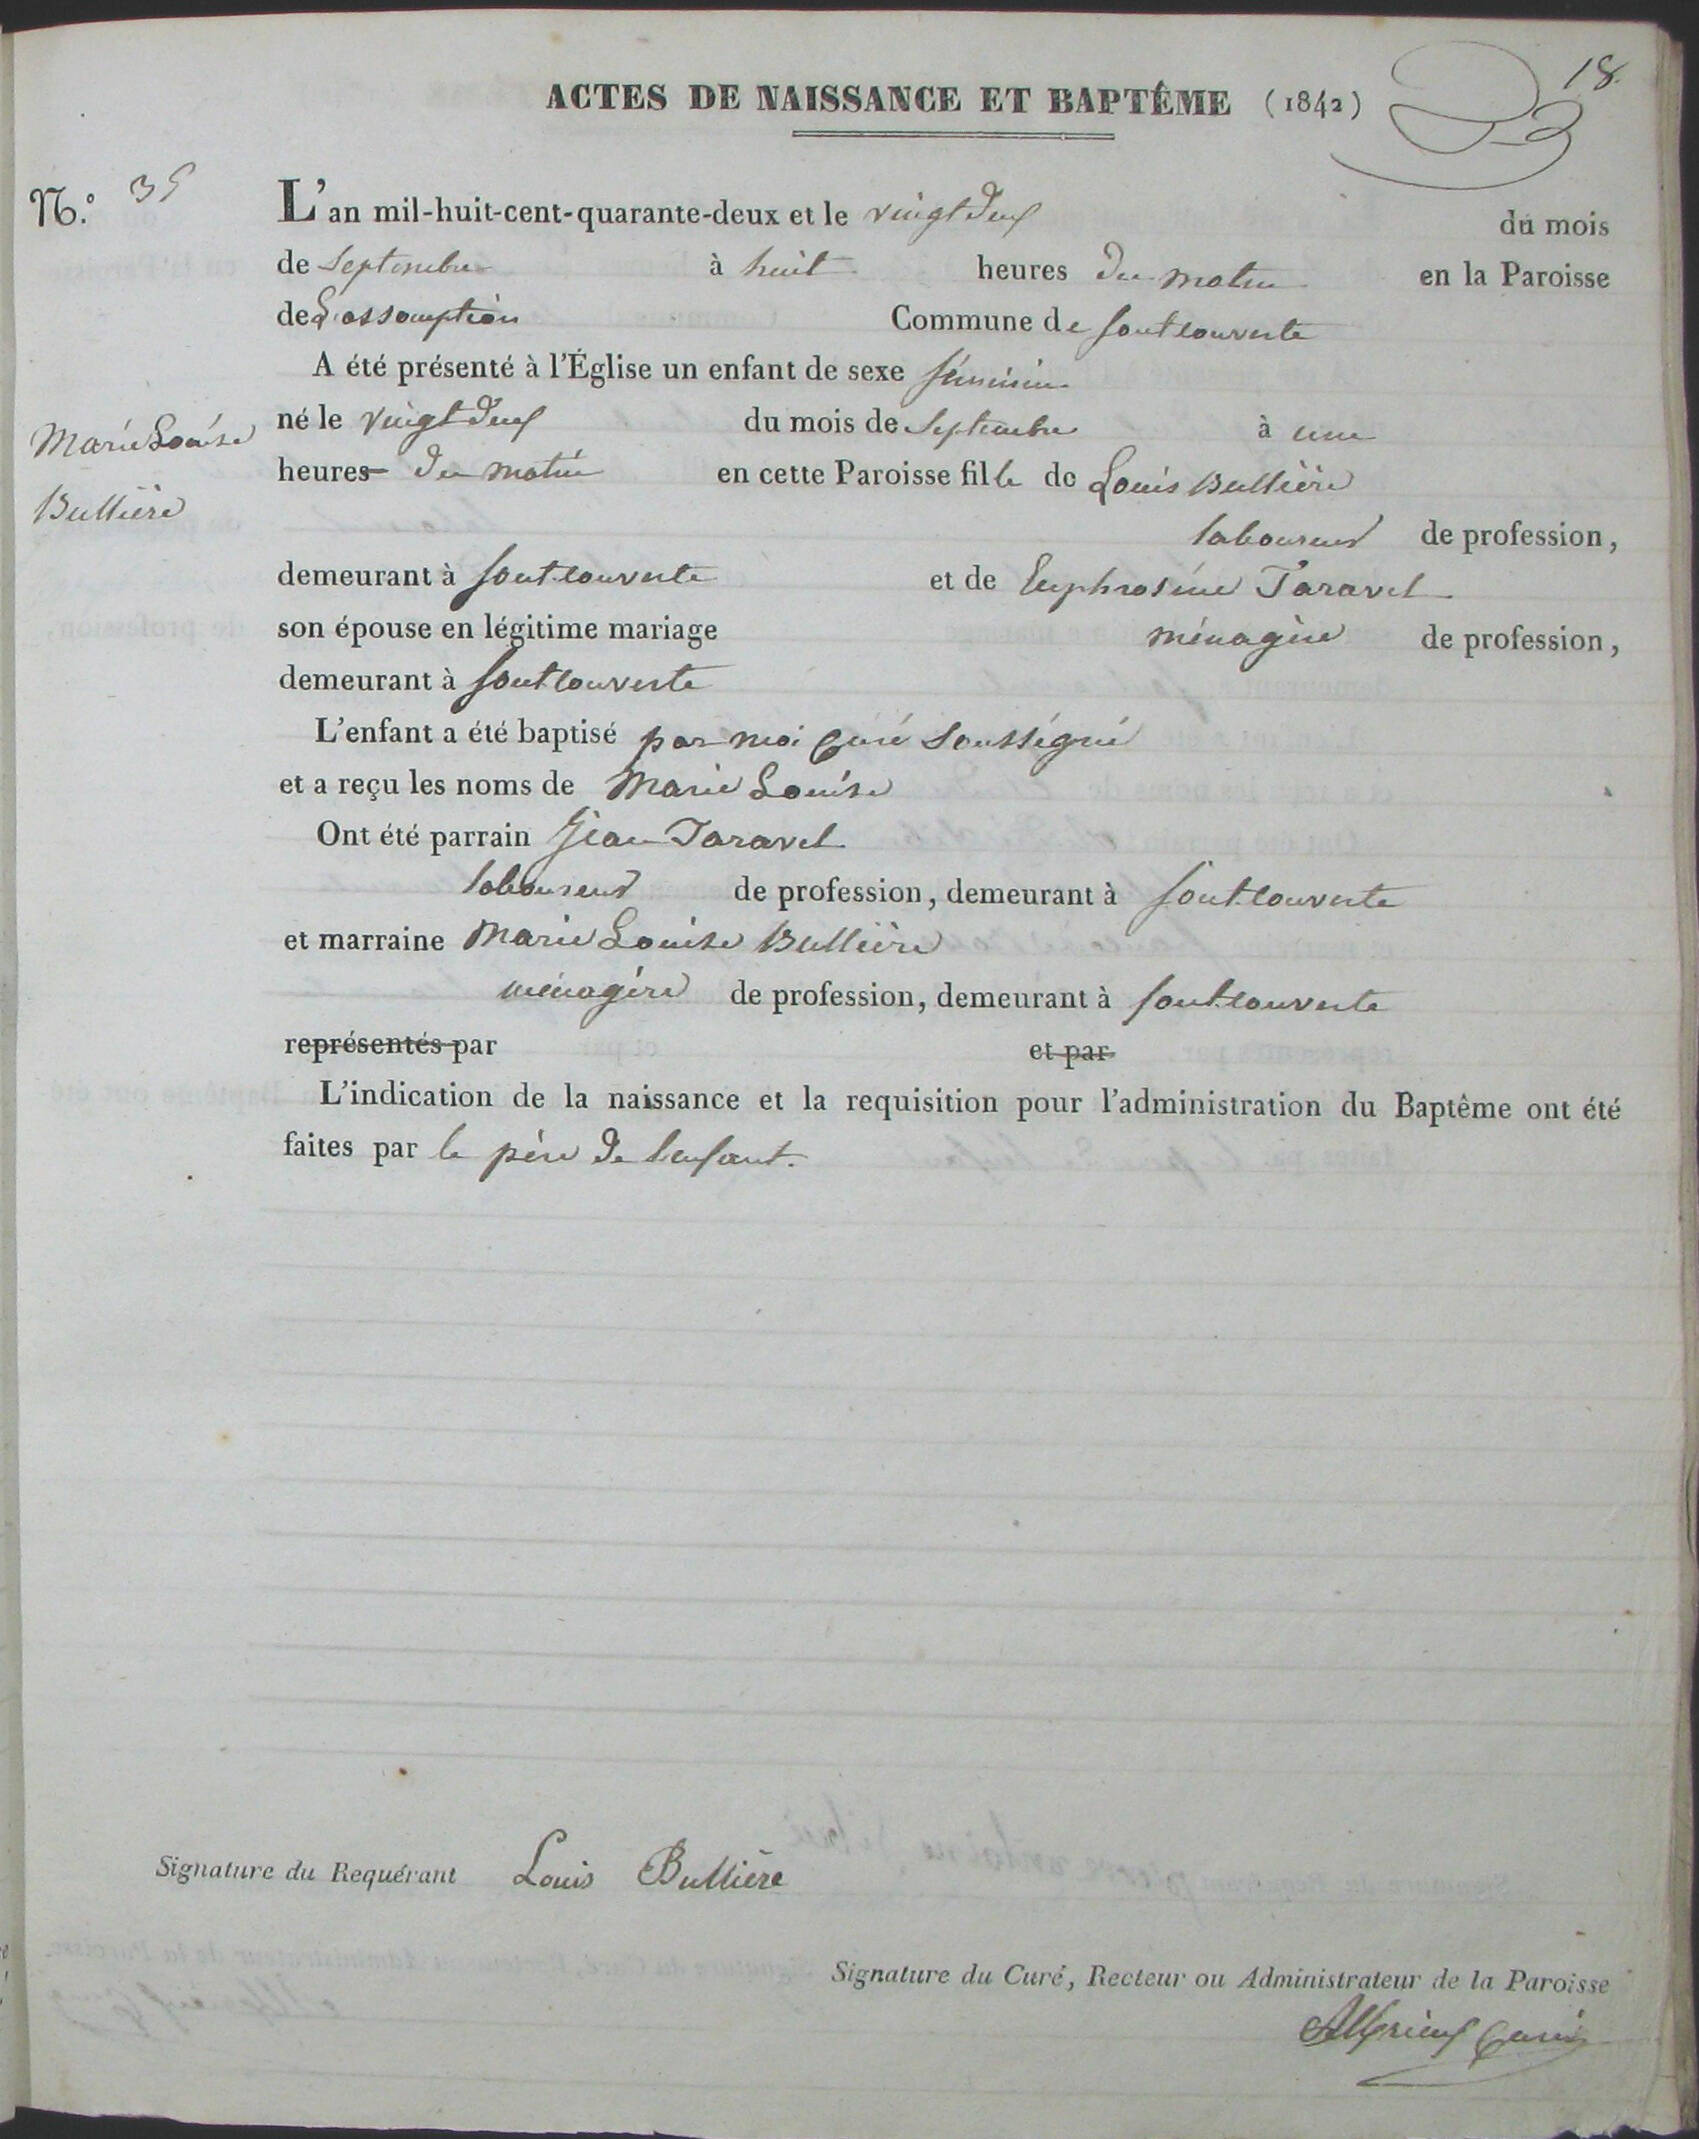 18.
ACTES DE NAISSANCE ET BAPTÊME (1842)
N.° 35
L'an mil-huit-cent-quarante-deux et le vingt deux du mois
de Septembre à huit heures du matin en la Paroisse
de L'assomption Commune de fontcouverte
A été présenté à l'Église un enfant de sexe féminin
né le vingt deux du mois de Septembre à une
Marie Louise
Bullière
heures du matin en cette Paroisse fille de Louis Bullière
laboureur de profession,
demeurant à fontcouverte et de Euphrosine Taravel
son épouse en légitime mariage ménagère de profession,
demeurant à fontcouverte
L'enfant a été baptisé par moi Curé soussigné
et a reçu les noms de Marie Louise
Ont été parrain Jean Taravel
laboureur de profession, demeurant à fontcouverte
et marraine Marie Louise Bullière
ménagère de profession, demeurant à fontcouverte
représentés par et par
L'indication de la naissance et la requisition pour l'administration du Baptême ont été
faites par le père de l'enfant.
Signature du Requérant Louis Bullière
Signature du Curé, Recteur ou Administrateur de la Paroisse
Curé